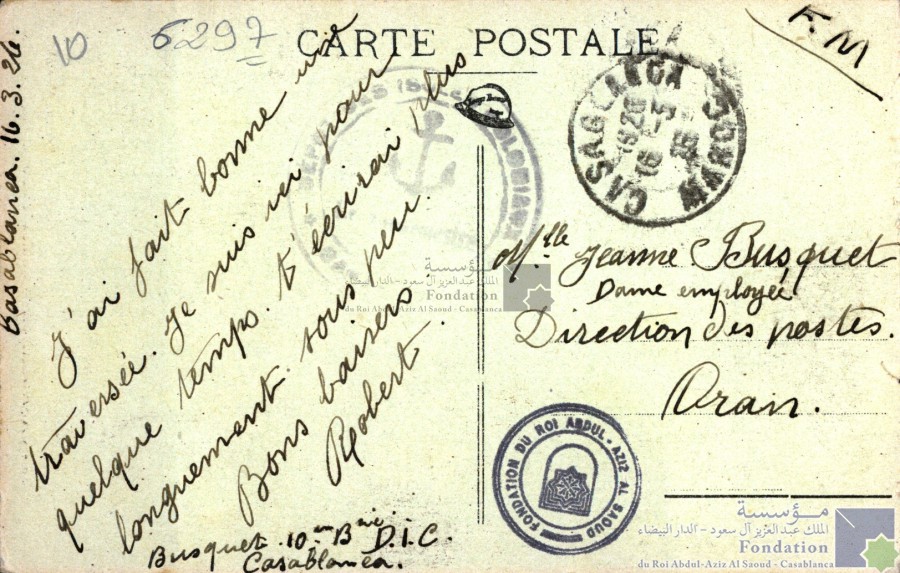 10
6297
F.M
CARTE POSTALE
Casablanca. 16.3.26.
J'ai fait bonne
traversée. Je suis ici pour
quelque temps. t'écrirai plus
longuement sous peu.
Bons baisers.
Robert.
Busquet 10me Bie D.I.C.
Casablanca.
CASABLANCA MAROC
COLONIAUX
Mlle Jeanne Busquet
Dame employée
Direction des postes.
Oran.
مؤسسة
الملك عبد العزيز آل سعود - الدار البيضاء
Fondation
du Roi Abdul-Aziz Al Saoud - Casablanca
FONDATION DU ROI ABDUL-AZIZ AL SAOUD
مؤسسة
الملك عبد العزيز آل سعود - الدار البيضاء
Fondation
du Roi Abdul-Aziz Al Saoud - Casablanca